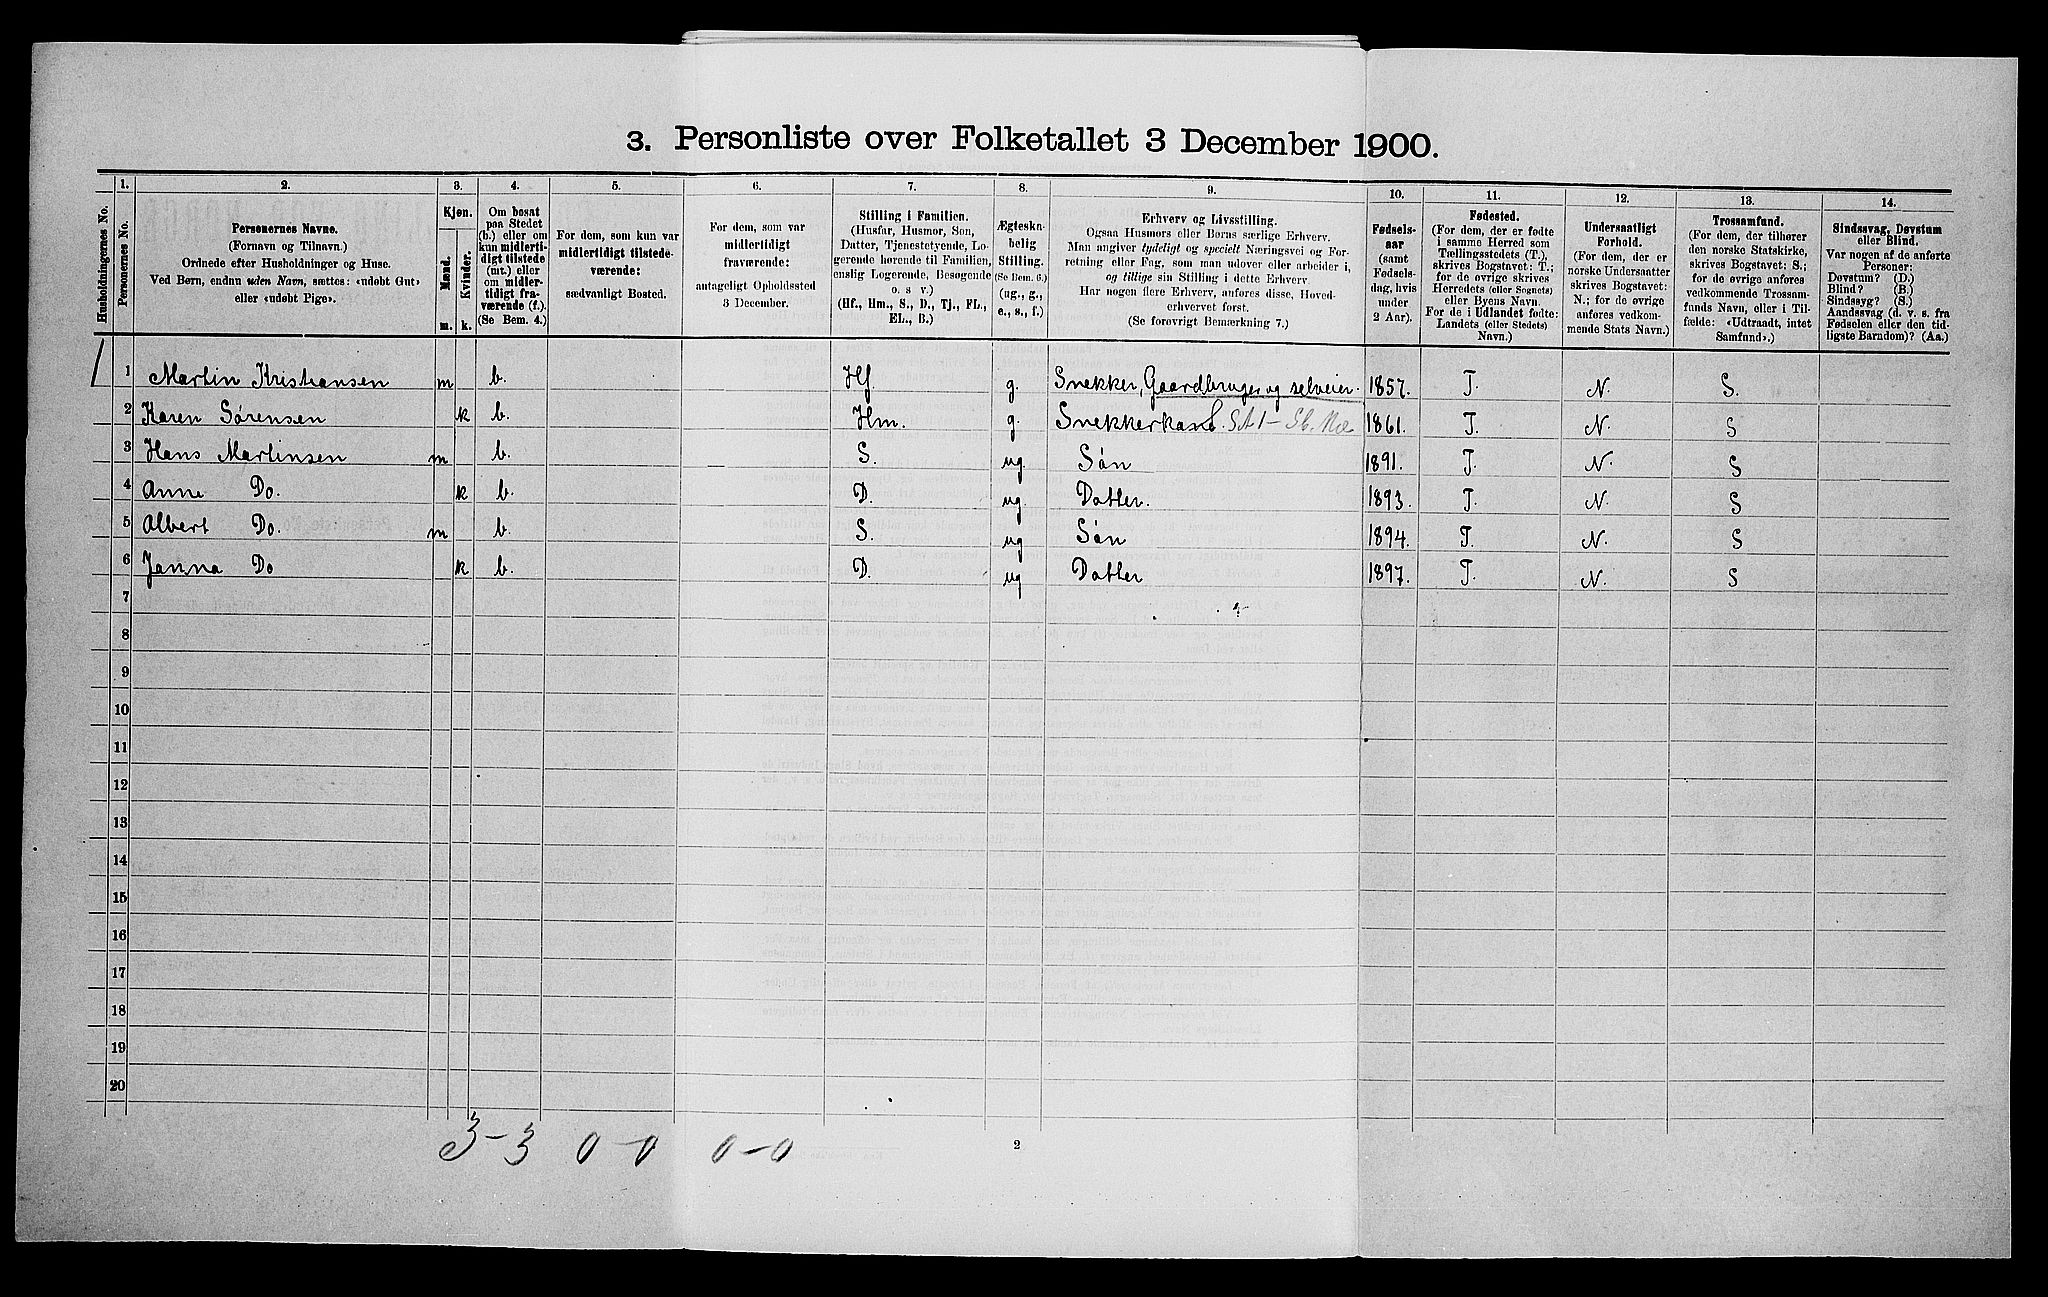 3. Personliste over Folketallet 3 December 1900.
Husholdningernes No.
1.
Personernes No.
2.
Personernes Navne.
(Fornavn og Tilnavn.)
Ordnede efter Husholdninger og Huse.
Ved Børn, endnu uden Navn, sættes: «udøbt Gut»
eller «udøbt Pige».
3.
Kjøn.
Mænd.
m.
Kvinder.
k.
4.
Om bosat
paa Stedet
(b.) eller om
kun midlerti-
digt tilstede
(mt.) eller
om midler-
tidigt fra-
værende (f.).
(Se Bem. 4.)
5.
For dem, som kun var
midlertidigt tilstede-
værende:
sædvanligt Bosted.
6.
For dem, som var
midlertidigt
fraværende:
antageligt Opholdssted
3 December.
7.
Stilling i Familien.
(Husfar, Husmor, Søn,
Datter, Tjenestetyende, Lo-
gerende hørende til Familien,
enslig Logerende, Besøgende
o. s v.)
(Hf., Hm., S., D., Tj., FL.,
EL., B.)
8.
Ægteska-
belig
Stilling.
(Se Bem. 6.)
(ug., g.,
e., s., f.)
9.
Erhverv og Livsstilling.
Ogsaa Husmors eller Børns særlige Erhverv.
Man angiver tydeligt og specielt Næringsvei og For-
retning eller Fag, som man udover eller arbeider i,
og tillige sin Stilling i dette Erhverv
Har nogen flere Erhverv, anføres disse, Hoved-
erhvervet først.
(Se forøvrigt Bemærkning 7.)
10.
Fødsels-
aar
(samt
Fødsels-
dag, hvis
under
2 Aar).
11.
Fødested.
(For dem, der er fødte
i samme Herred som
Tællingsstedets (T.),
skrives Bogstavet: T.;
for de øvrige skrives
Herredets (eller Sognets)
eller Byens Navn.
For de i Udlandet fødte:
Landets (eller Stedets)
Navn.)
12.
Undersaatligt
Forhold.
(For dem, der er
norske Undersaatter
skrives Bogstavet:
N.; for de øvrige
anføres vedkom-
mende Stats Navn.)
13.
Trossamfund.
(For dem, der tilhører
den norske Statskirke,
skrives Bogstavet: S.;
for de øvrige anføres
vedkommende Trossam-
funds Navn, eller i Til-
fælde: «Udtraadt, intet
Samfund».)
14.
Sindssvag, Døvstum
eller Blind.
Var nogen af de anførte
Personer:
Døvstum? (D.)
Blind? (B.)
Sindssyg? (S.)
Aandssvag (d. v. s. fra
Fødselen eller den tid-
ligste Barndom)? (Aa.)
1 1 Martin Kristiansen m b. Hf g. Snekker, Gaardbruger og selveier. 1857. T. N. S.
2 Karen Sørensen k b. Hm. g. Snekkerkone 1861. T. N. S
3 Hans Martinsen m b. S. ug. Søn 1891. T. N. S
4 Anne Do. k b. D. ug. Datter. 1893. T. N. S
5 Albert Do. m b. S. ug Søn 1894. T. N. S
6 Janna Do k b. D. ug Datter 1897. T. N. S
7
8
9
10
11
12
13
14
15
16
17
18
19
20
3-3 0-0 0-0
2